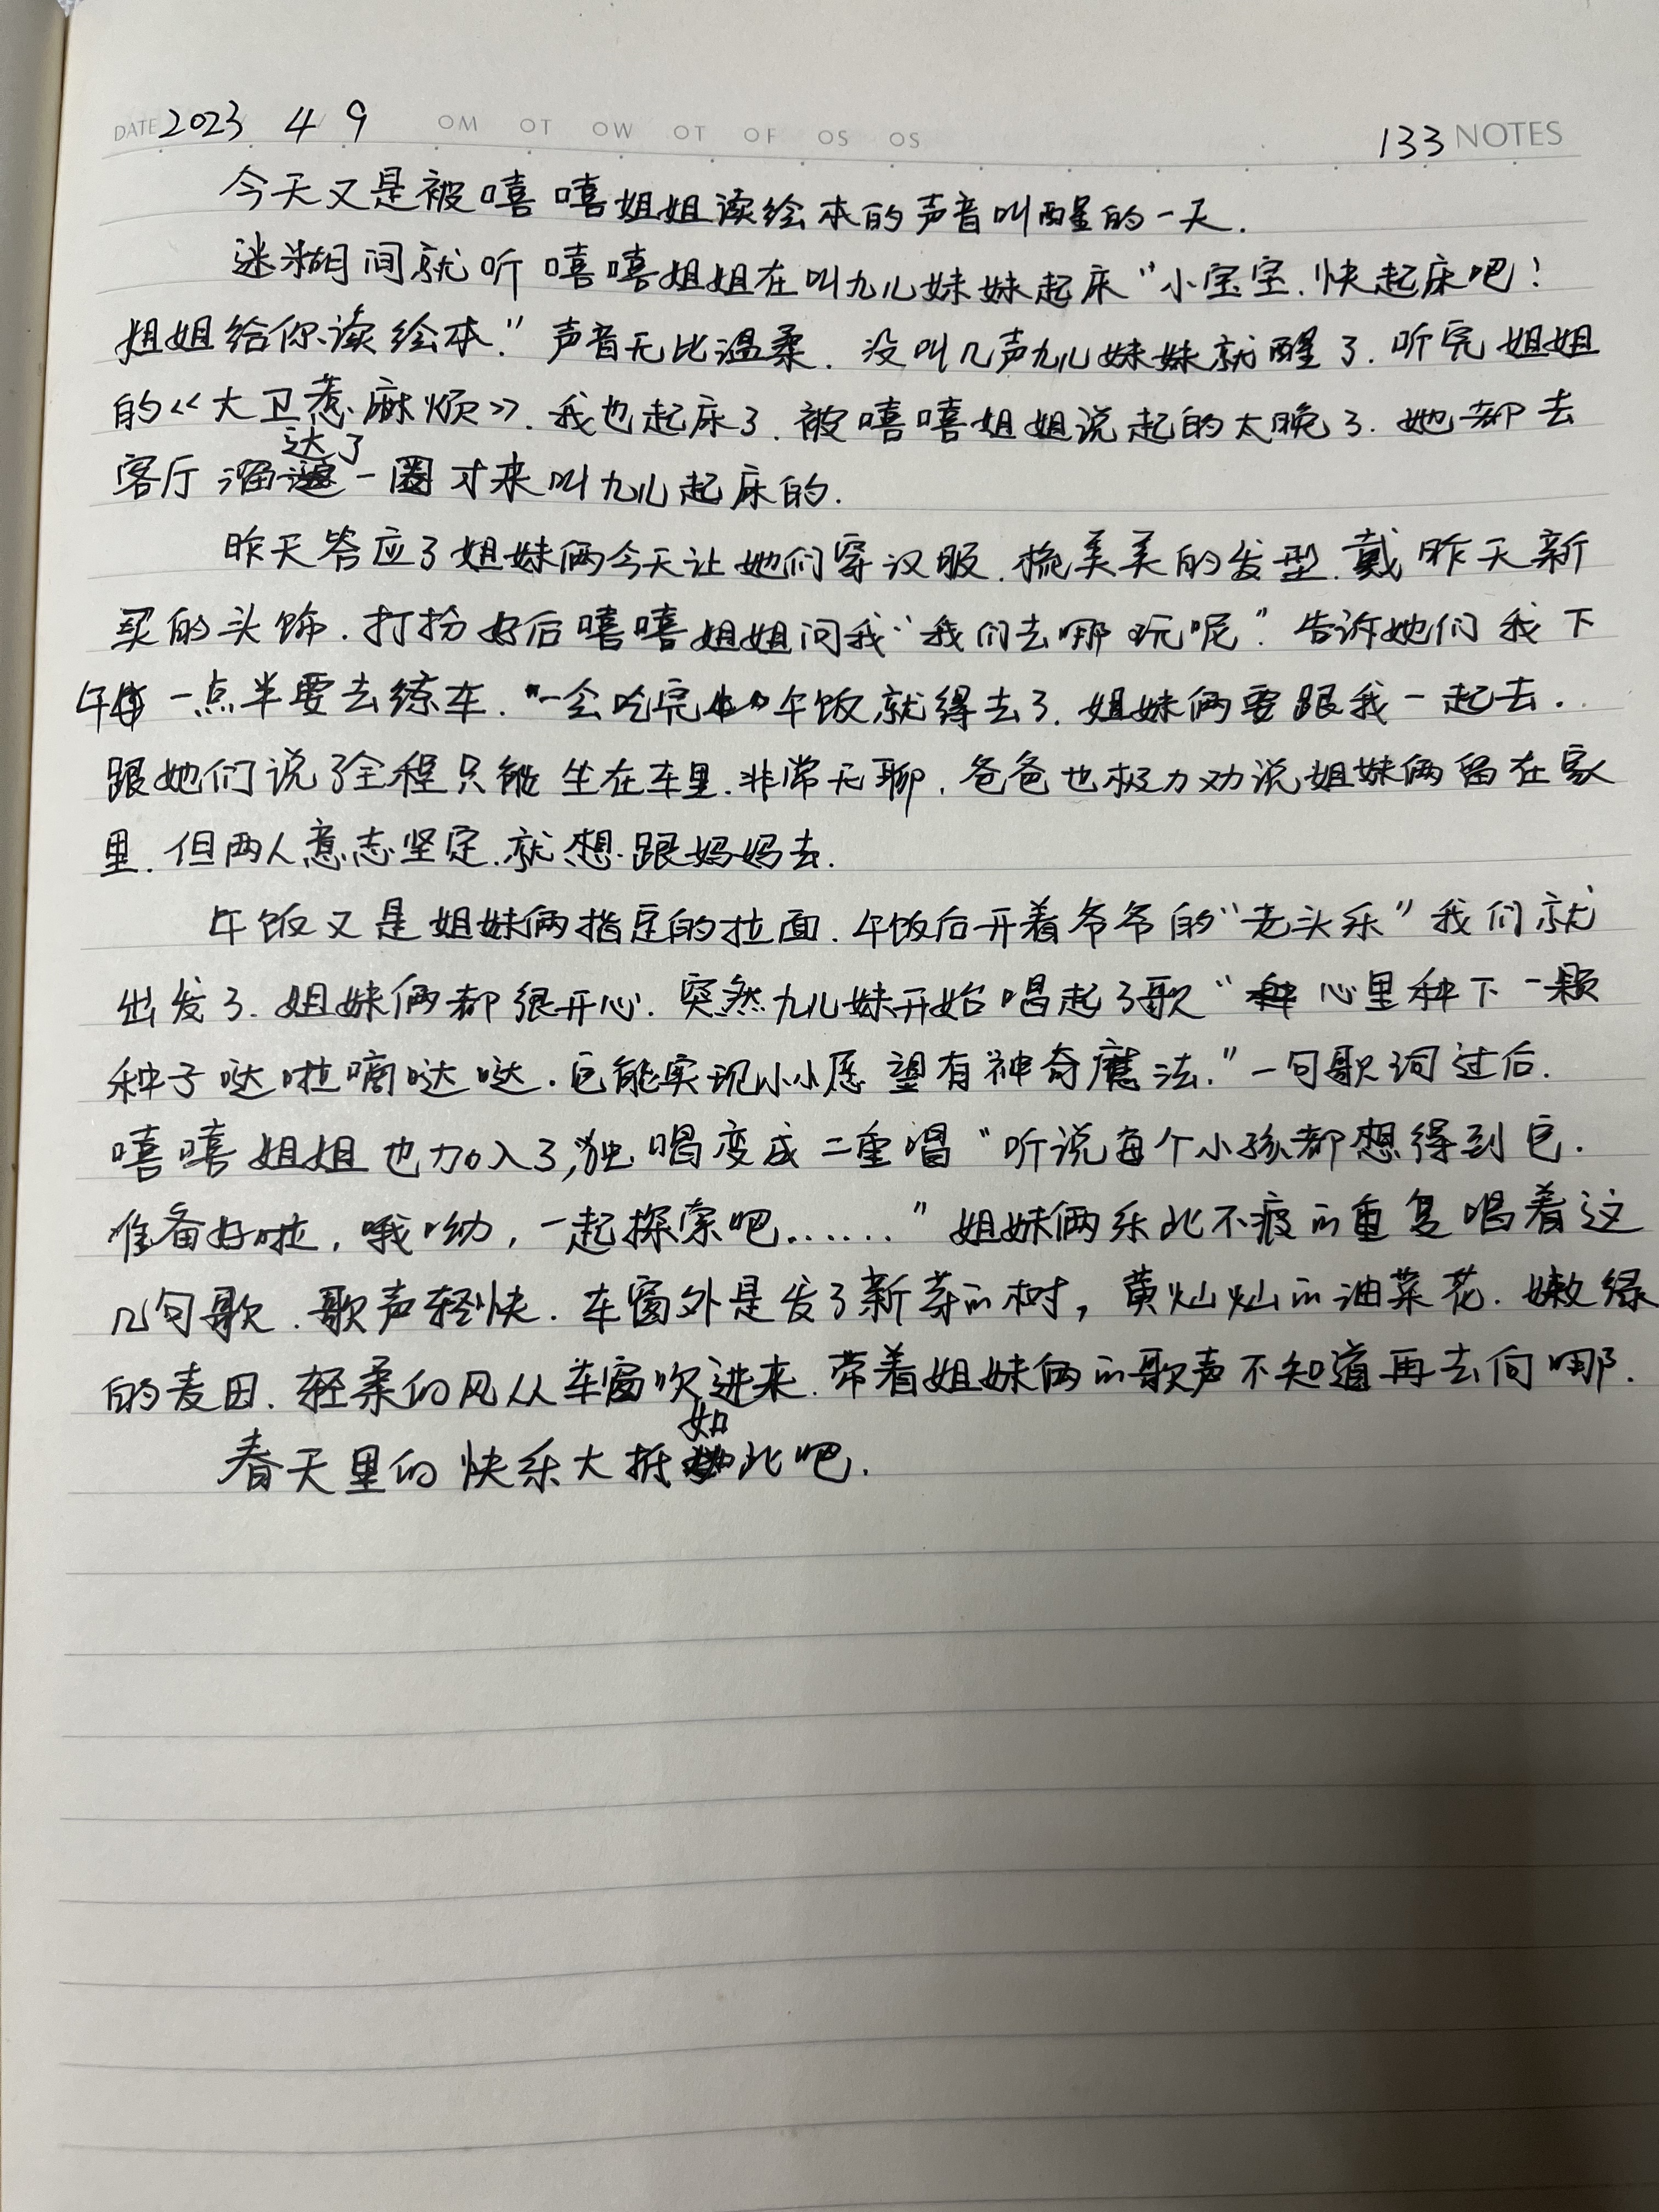 DATE 2023 4 9 OM OT OW OT OF OS OS 133 NOTES
今天又是被嘻嘻姐姐读绘本的声音叫醒的一天.
迷糊间就听嘻嘻姐姐在叫九儿妹妹起床“小宝宝.快起床吧!
姐姐给你读绘本.”声音无比温柔.没叫几声九儿妹妹就醒了.听完姐姐
的《大卫惹麻烦》.我也起床了.被嘻嘻姐姐说起的太晚了.她都去
客厅溜达了一圈才来叫九儿起床的.
昨天答应了姐妹俩今天让她们穿汉服.梳美美的发型.戴昨天新
买的头饰.打扮好后嘻嘻姐姐问我“我们去哪玩呢”.告诉她们我下
午一点半要去练车.一会吃完午饭就得去了.姐妹俩要跟我一起去.
跟她们说了全程只能坐在车里.非常无聊.爸爸也极力劝说姐妹俩留在家
里.但两人意志坚定.就想跟妈妈去.
午饭又是姐妹俩指定的拉面.午饭后开着爷爷的“老头乐”我们就
出发了.姐妹俩都很开心.突然九儿妹开始唱起了歌“心里种下一颗
种子哒啦嘀哒哒.它能实现小小愿望有神奇魔法.”一句歌词过后.
嘻嘻姐姐也加入了,独唱变成二重唱“听说每个小孩都想得到它.
准备好啦,哦呦,一起探索吧......”姐妹俩乐此不疲的重复唱着这
几句歌.歌声轻快.车窗外是发了新芽的树,黄灿灿的油菜花.嫩绿
的麦田.轻柔的风从车窗吹进来.带着姐妹俩的歌声不知道再去向哪.
春天里的快乐大抵如此吧.